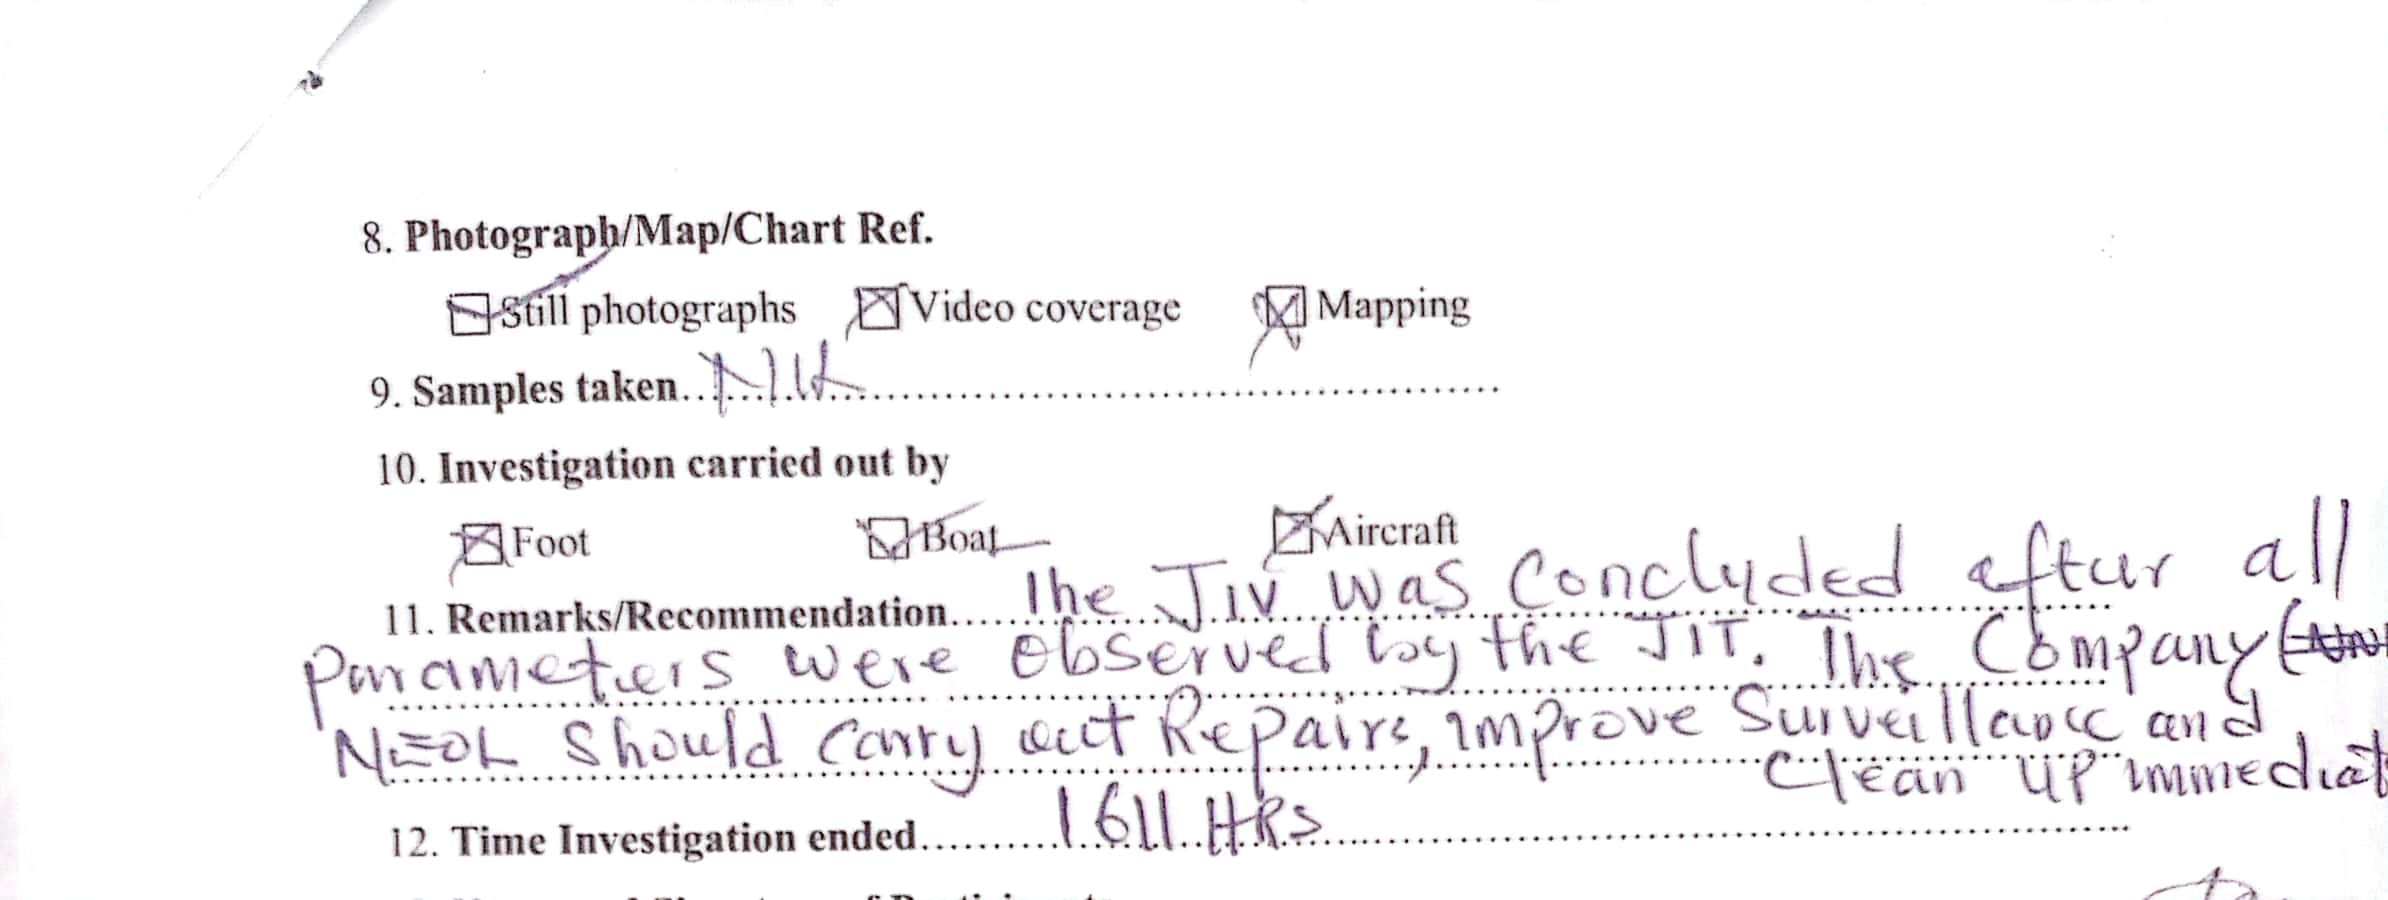 8. Photograph/Map/Chart Ref.
Still photographs Video coverage Mapping
9. Samples taken.. NIL
10. Investigation carried out by
Foot Boat Aircraft
11. Remarks/Recommendation..... The JIV was Concluded after all
Parameters were Observed by the JIT. The Company (
should carry out Repairs, improve Surveillance and
Clean up immediat
12. Time Investigation ended.......... 1611 HRS